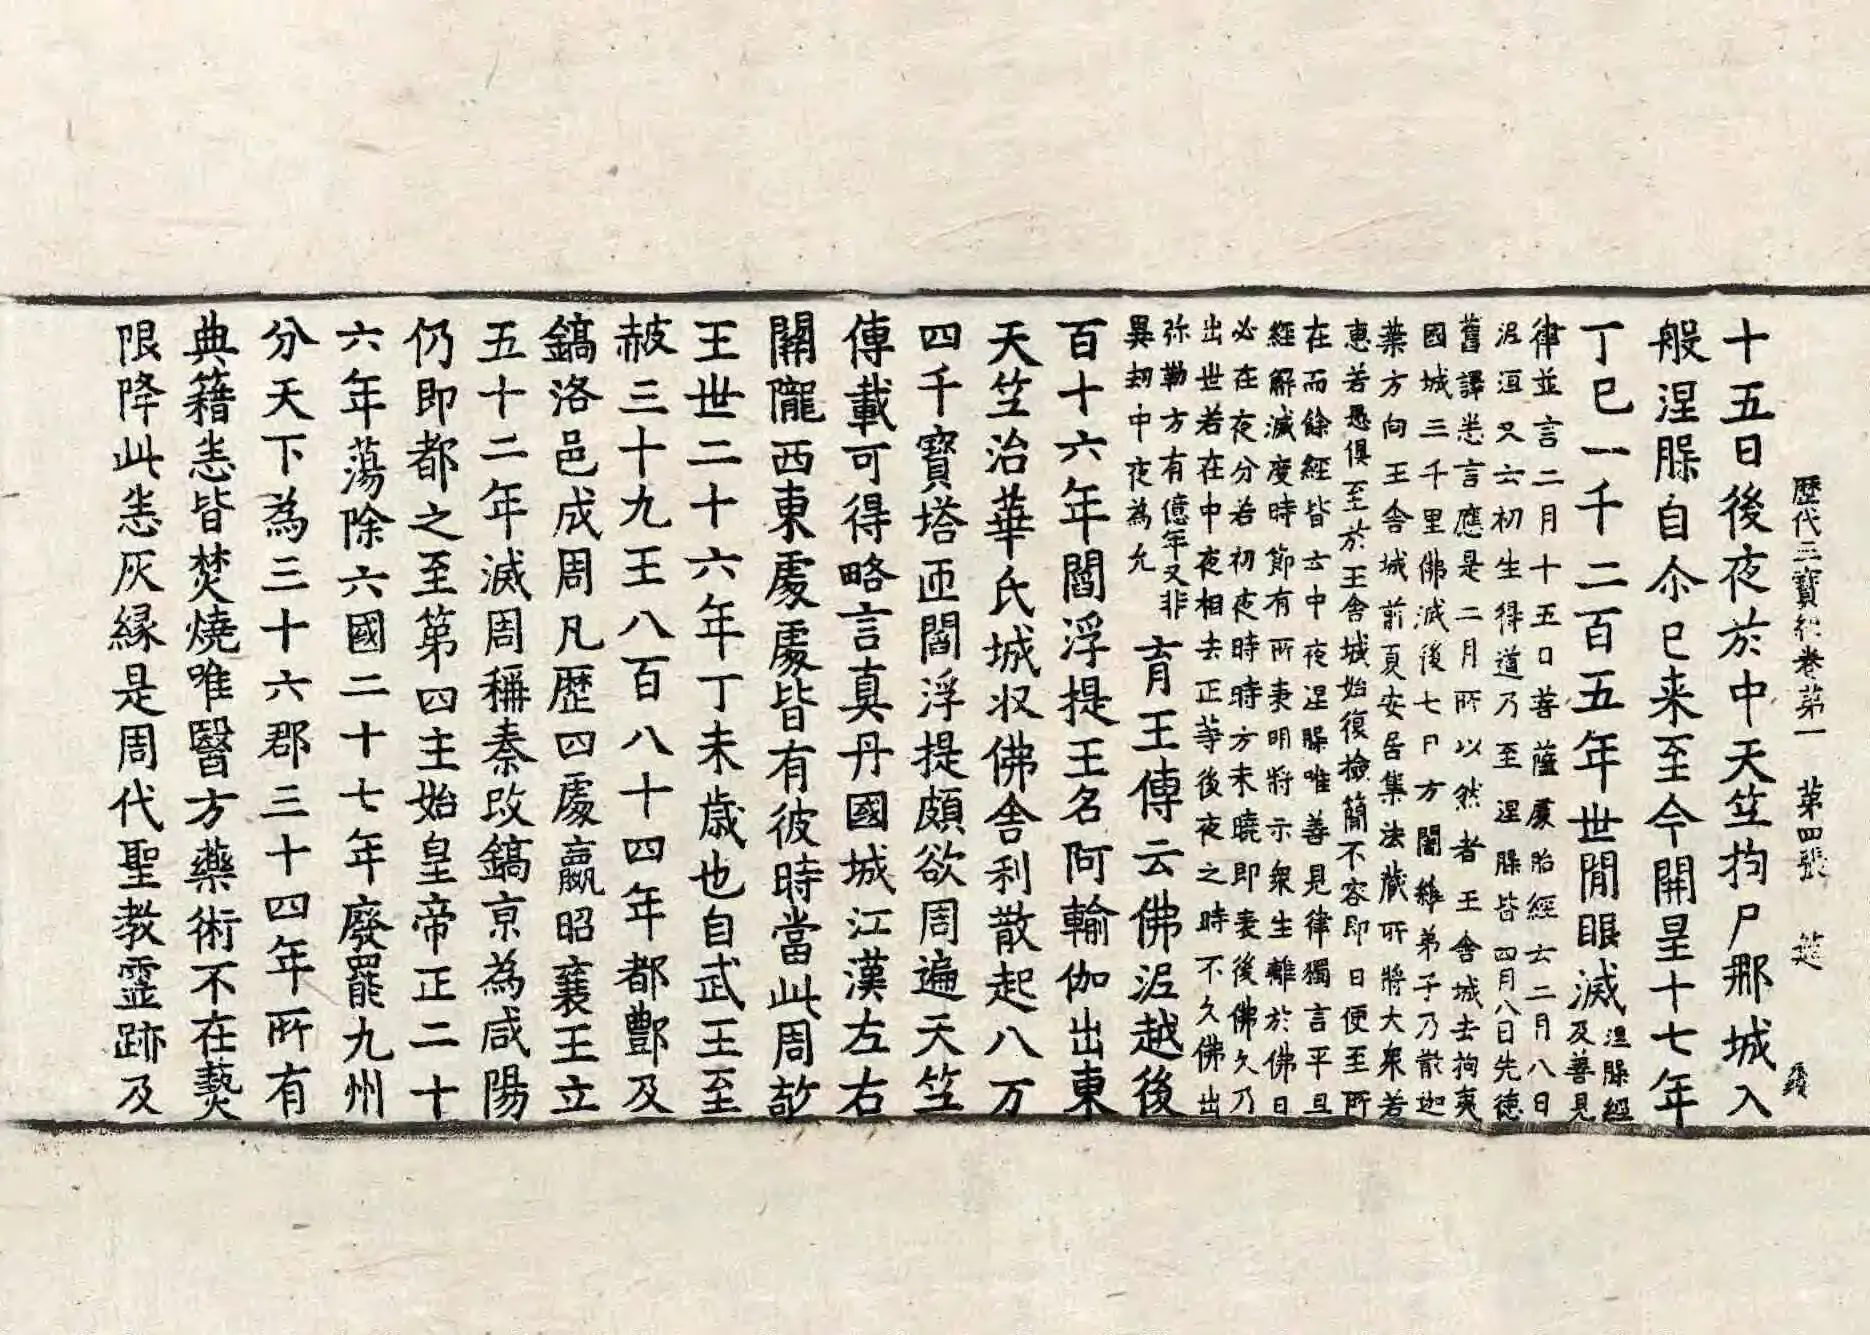 歴代三寳紀卷苐一 苐四張
十五日後夜於中天笁拘尸那城入
般涅腂自尒巳来至今開皇十七年
丁巳一千二百五年世間眼滅
涅腂經
及善見
律並言二月十五日善薩處胎經云二月八日
泥洹又云初生得道乃至涅腂皆四月八日先德
舊譯恙言應是二月所以然者王舍城去拘夷
國城三千里佛滅後七日方闍維弟子乃散迦
葉方向王舍城前夏安居集法藏所將大衆若
惠若愚俱至於王舍城始復撿簡不容即日便至所
在而餘經皆云中夜涅腂唯善見律獨言平旦
經解滅度時節有所表明將示衆生離於佛日
必在夜分若初夜時時方未曉即表後佛久乃
出世若在中夜相去正等後夜之時不久佛出
弥勒方有億年又非
異刼中夜為允
育王傳云佛泥越後
百十六年閻浮提王名阿輸伽出東
天笁治華氏城収佛舍利散起八万
四千寳塔迊閻浮提頗欲周遍天笁
傳載可得略言真丹國城江漢左右
關隴西東處處皆有彼時當此周敬
王世二十六年丁未歳也自武王至
赧三十九王八百八十四年都酆及
鎬洛邑成周凡歴四處嬴昭襄王立
五十二年滅周稱秦改鎬京為咸陽
仍即都之至第四主始皇帝正二十
六年蕩除六國二十七年廢罷九州
分天下為三十六郡三十四年所有
典籍恙皆焚燒唯醫方藥術不在爇
限降此恙灰縁是周代聖教靈跡及